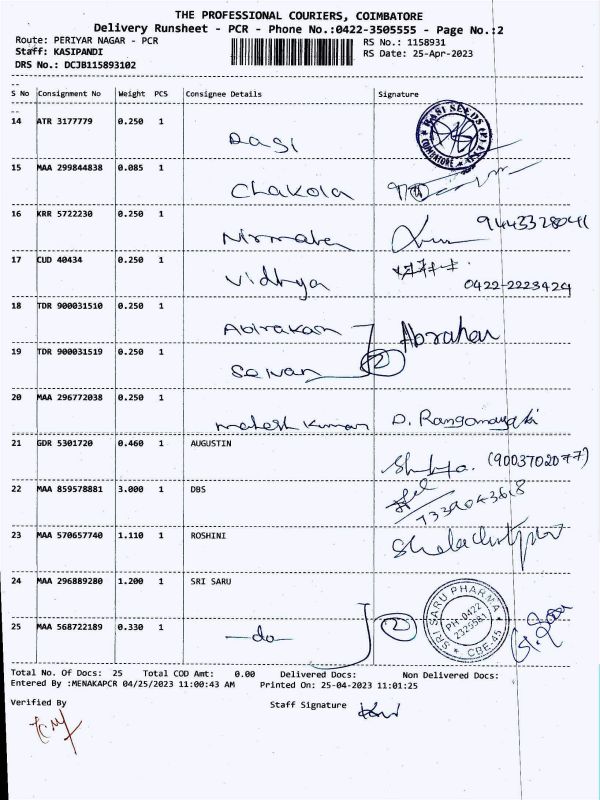 THE PROFESSIONAL COURIERS, COIMBATORE
Delivery Runsheet - PCR - Phone No.:0422-3505555 - Page No.:2
Route: PERIYAR NAGAR - PCR
RS No.: 1158931
Staff: KASIPANDI
RS Date: 25-Apr-2023
DRS No.: DCJB115893102
S No Consignment No Weight PCS Consignee Details Signature
14 ATR 3177779 0.250 1 Rasi
RASI SEEDS (P) LTD
COIMBATORE
15 MAA 299844838 0.085 1 Chakola
16 KRR 5722230 0.250 1 Nirmala 9443328041
17 CUD 40434 0.250 1 Vidhya
0422-2223424
18 TDR 900031510 0.250 1 Abirakam Abraham
19 TDR 900031519 0.250 1 Selvan 2
20 MAA 296772038 0.250 1 Mahesh Kumar D. Ranganayaki
21 GDR 5301720 0.460 1 AUGUSTIN
(9003702077)
22 MAA 859578881 3.000 1 DBS
7339043618
23 MAA 570657740 1.110 1 ROSHINI
24 MAA 296889280 1.200 1 SRI SARU
SRI SARU PHARMA
PH : 0422
2325581
CBE-45
25 MAA 568722189 0.330 1 —do— 2
Total No. Of Docs: 25 Total COD Amt: 0.00 Delivered Docs: Non Delivered Docs:
Entered By :MENAKAPCR 04/25/2023 11:00:43 AM Printed On: 25-04-2023 11:01:25
Verified By
Staff Signature